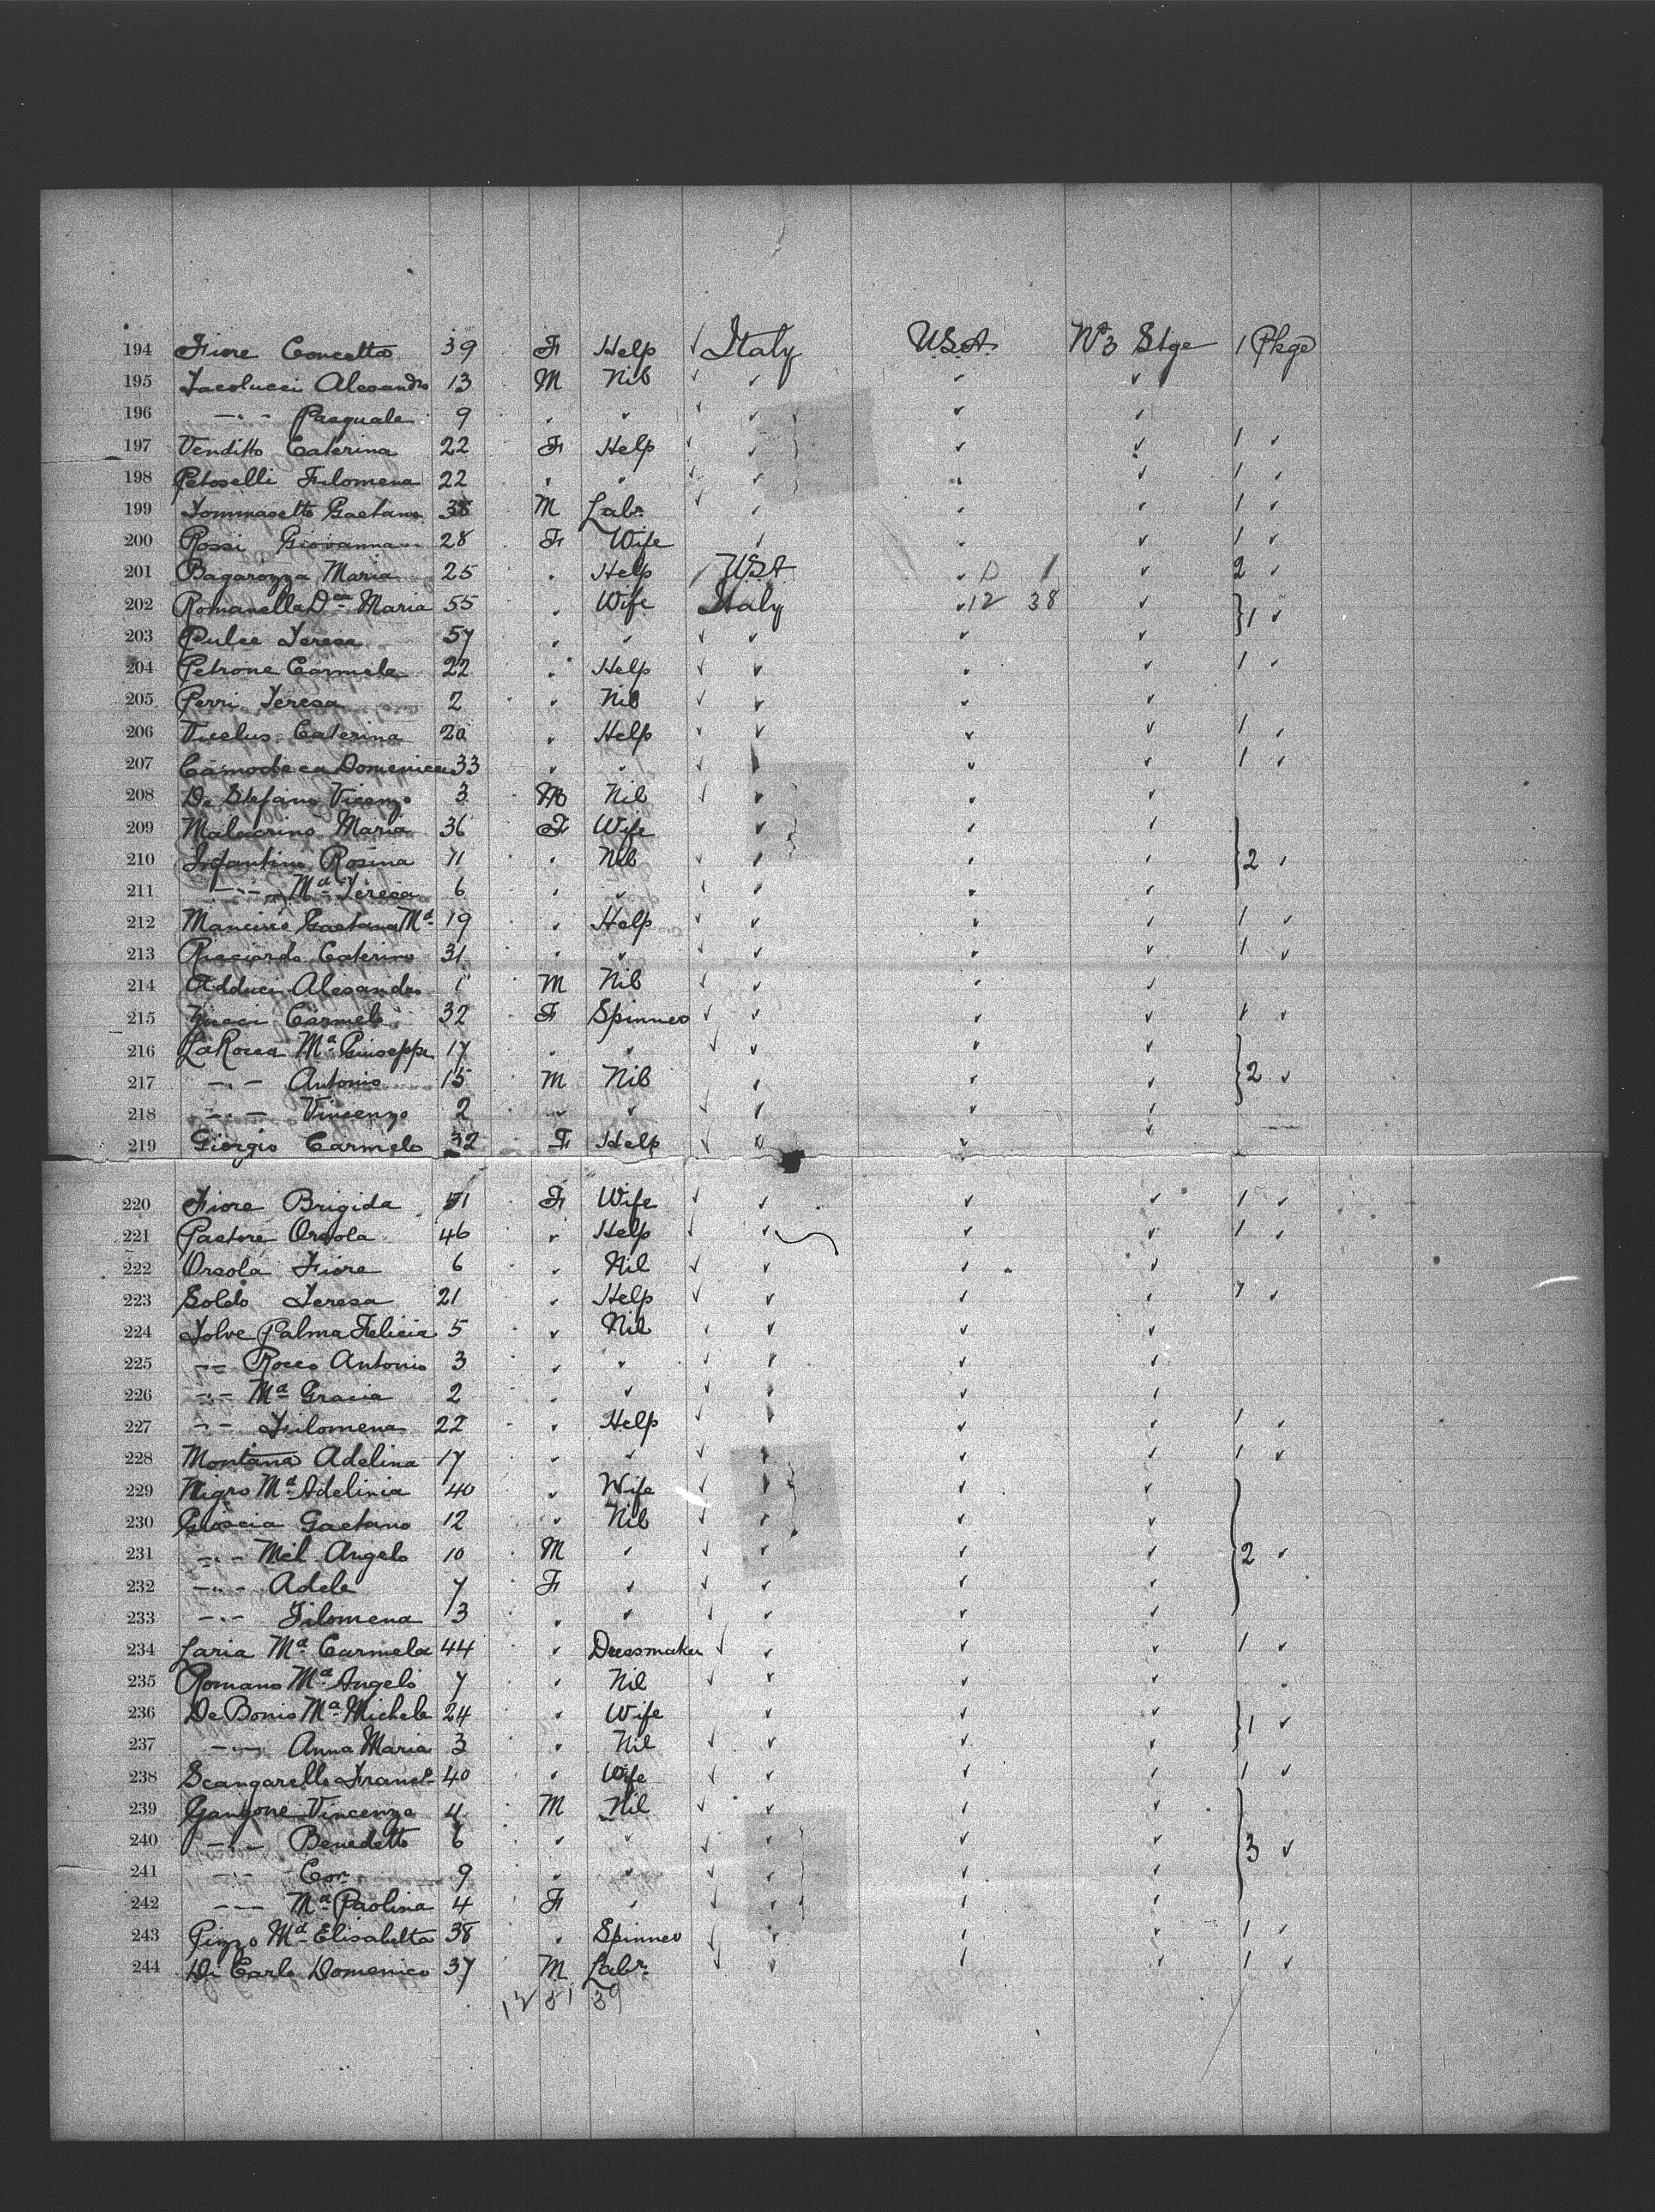 194 Fiore Concetta 39 F Help Italy U.S.A. No 3 Stge 1 Pkge
195 Iacolucci Alesandro 13 M Nil
196 -"- Pasquale 9
197 Venditto Caterina 22 F Help 1
198 Petoselli Filomena 22 1
199 Tommasetto Gaetano 38 M Labr. 1
200 Rossi Giovanna 28 F Wife 1
201 Bagarozza Maria 25 Help USA 2
202 Romanella Dca Maria 55 Wife Italy 12 38 } 1
203 Pulce Teresa 57
204 Petrone Carmela 22 Help 1
205 Perri Teresa 2 Nil
206 Caterina 20 Help 1
207 Camodeca Domenica 33 1
208 De Stefano Vicenzo 3 M Nil
209 Malacrino Maria 36 F Wife
210 Infantino Rosina 11 Nil } 2
211 -"- Ma Teresa 6
212 Gaetana Ma 19 Help 1
213 Ricciardo Caterina 31 1
214 Adduci Alesandro M Nil
215 Carmela 32 F Spinner 1
216 La Rocca Ma Giuseppe 17
217 -"- Antonio 15 M Nil } 2
218 -"- Vincenzo 2
219 Giorgio Carmelo 32 F Help
220 Fiore Brigida 51 F Wife 1
221 Pastore Orsola 46 Help 1
222 Orsola Fiore 6 Nil
223 Soldo Teresa 21 Help 1
224 Tolve Palma Felicia 5 Nil
225 -"- Rocco Antonio 3
226 -"- Ma Gracia 2
227 -"- Filomena 22 Help 1
228 Montana Adelina 17 1
229 Nigro Ma Adelinia 40 Wife
230 Gioscia Gaetano 12 Nil
231 -"- Mel. Angelo 10 M } 2
232 -"- Adele 7 F
233 -"- Filomena 3
234 Laria Ma Carmela 44 Dressmaker 1
235 Romano Ma Angelo 7 Nil
236 De Bonis Ma Michele 24 Wife } 1
237 -"- Anna Maria 3 Nil
238 Scangarello 40 Wife 1
239 Gangone Vincenzo M Nil
240 -"- Benedetto 6 } 3
241 -"- Con. 9
242 -"- Ma Paolina 4 F
243 Pizzo Ma Elisabetta 38 Spinner 1
244 Di Carlo Domenico 37 M Labr. 1
12 51 39